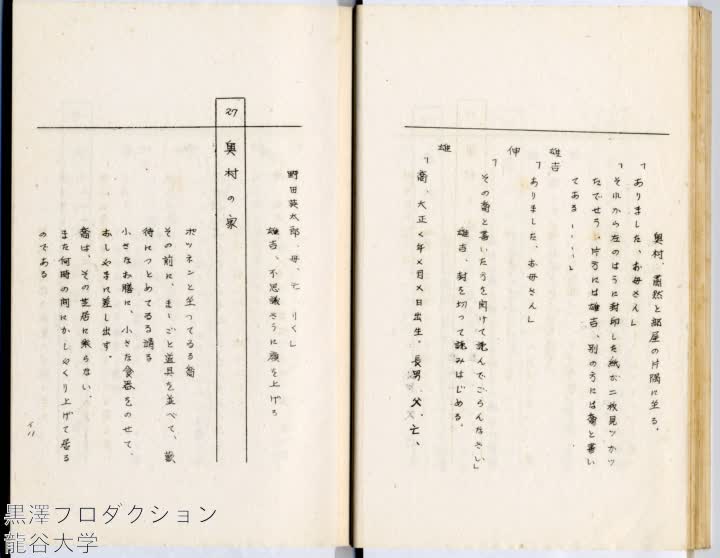 奥村、肅然と部屋の片隅に坐る。
「ありました、お母さん」
「それから左のはうに封印した紙が二枚見ツかツ
たでせう、片方には雄吉、別の方には喬と書い
てある‥‥」
雄吉
「ありました、お母さん」
伸
「その喬と書いたはうを開けて読んでごらんなさい」
雄吉、封を切つて読みはじめる。
雄
「喬、大正く年×月×日出生。長男、父、亡、
野田英太郎、母、亡 りく」
雄吉、不思議さうに顔を上げる
27 奥村の家
ポツネンと坐つてゐる喬
その前に、まゝごと道具を並べて、
待につとめてゐる
小さなお膳に、小さな食器をのせて、
おしやまに差し出す。
喬は、その芝居に乗らない、
また何時の間にかしやくり上げて居る
のである
黒澤プロダクション
龍谷大学